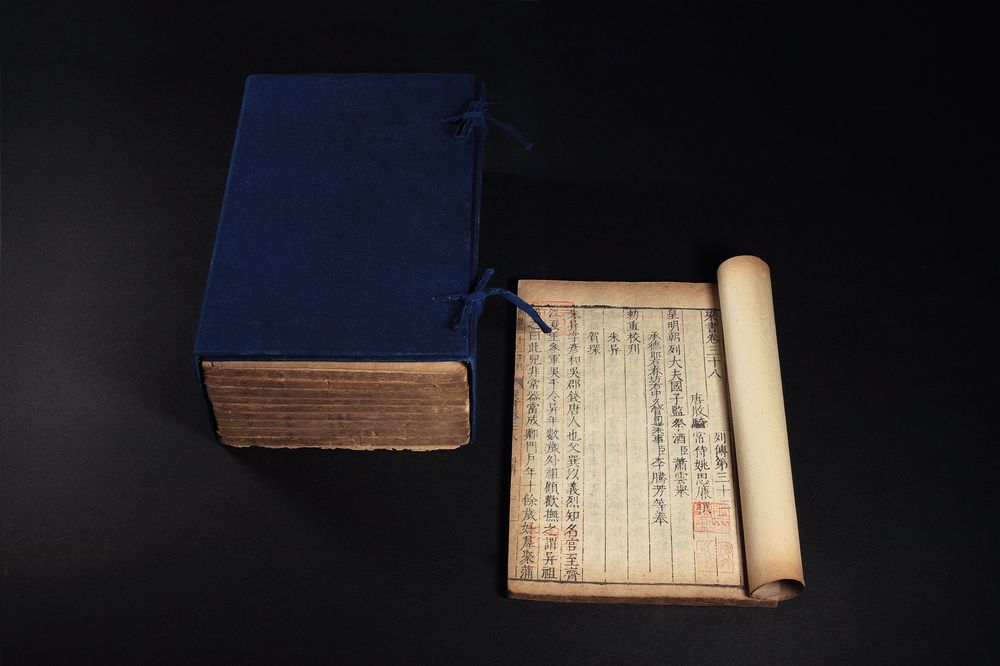 梁書卷三十八
列傳第三十二
唐散騎常侍姚思廉撰
皇明朝列大夫國子監祭酒臣蕭雲舉
承德郎右春坊右中允管司業事臣李騰芳等奉
勅重校刊
朱异
賀琛
朱异字彥和吳郡錢唐人也父巽以義烈知名官至齊
江夏王參軍吳平令异年數歲外祖顧歡撫之謂异祖
昭之曰此兒非常器當成卿門戶年十餘歲好羣聚蒲